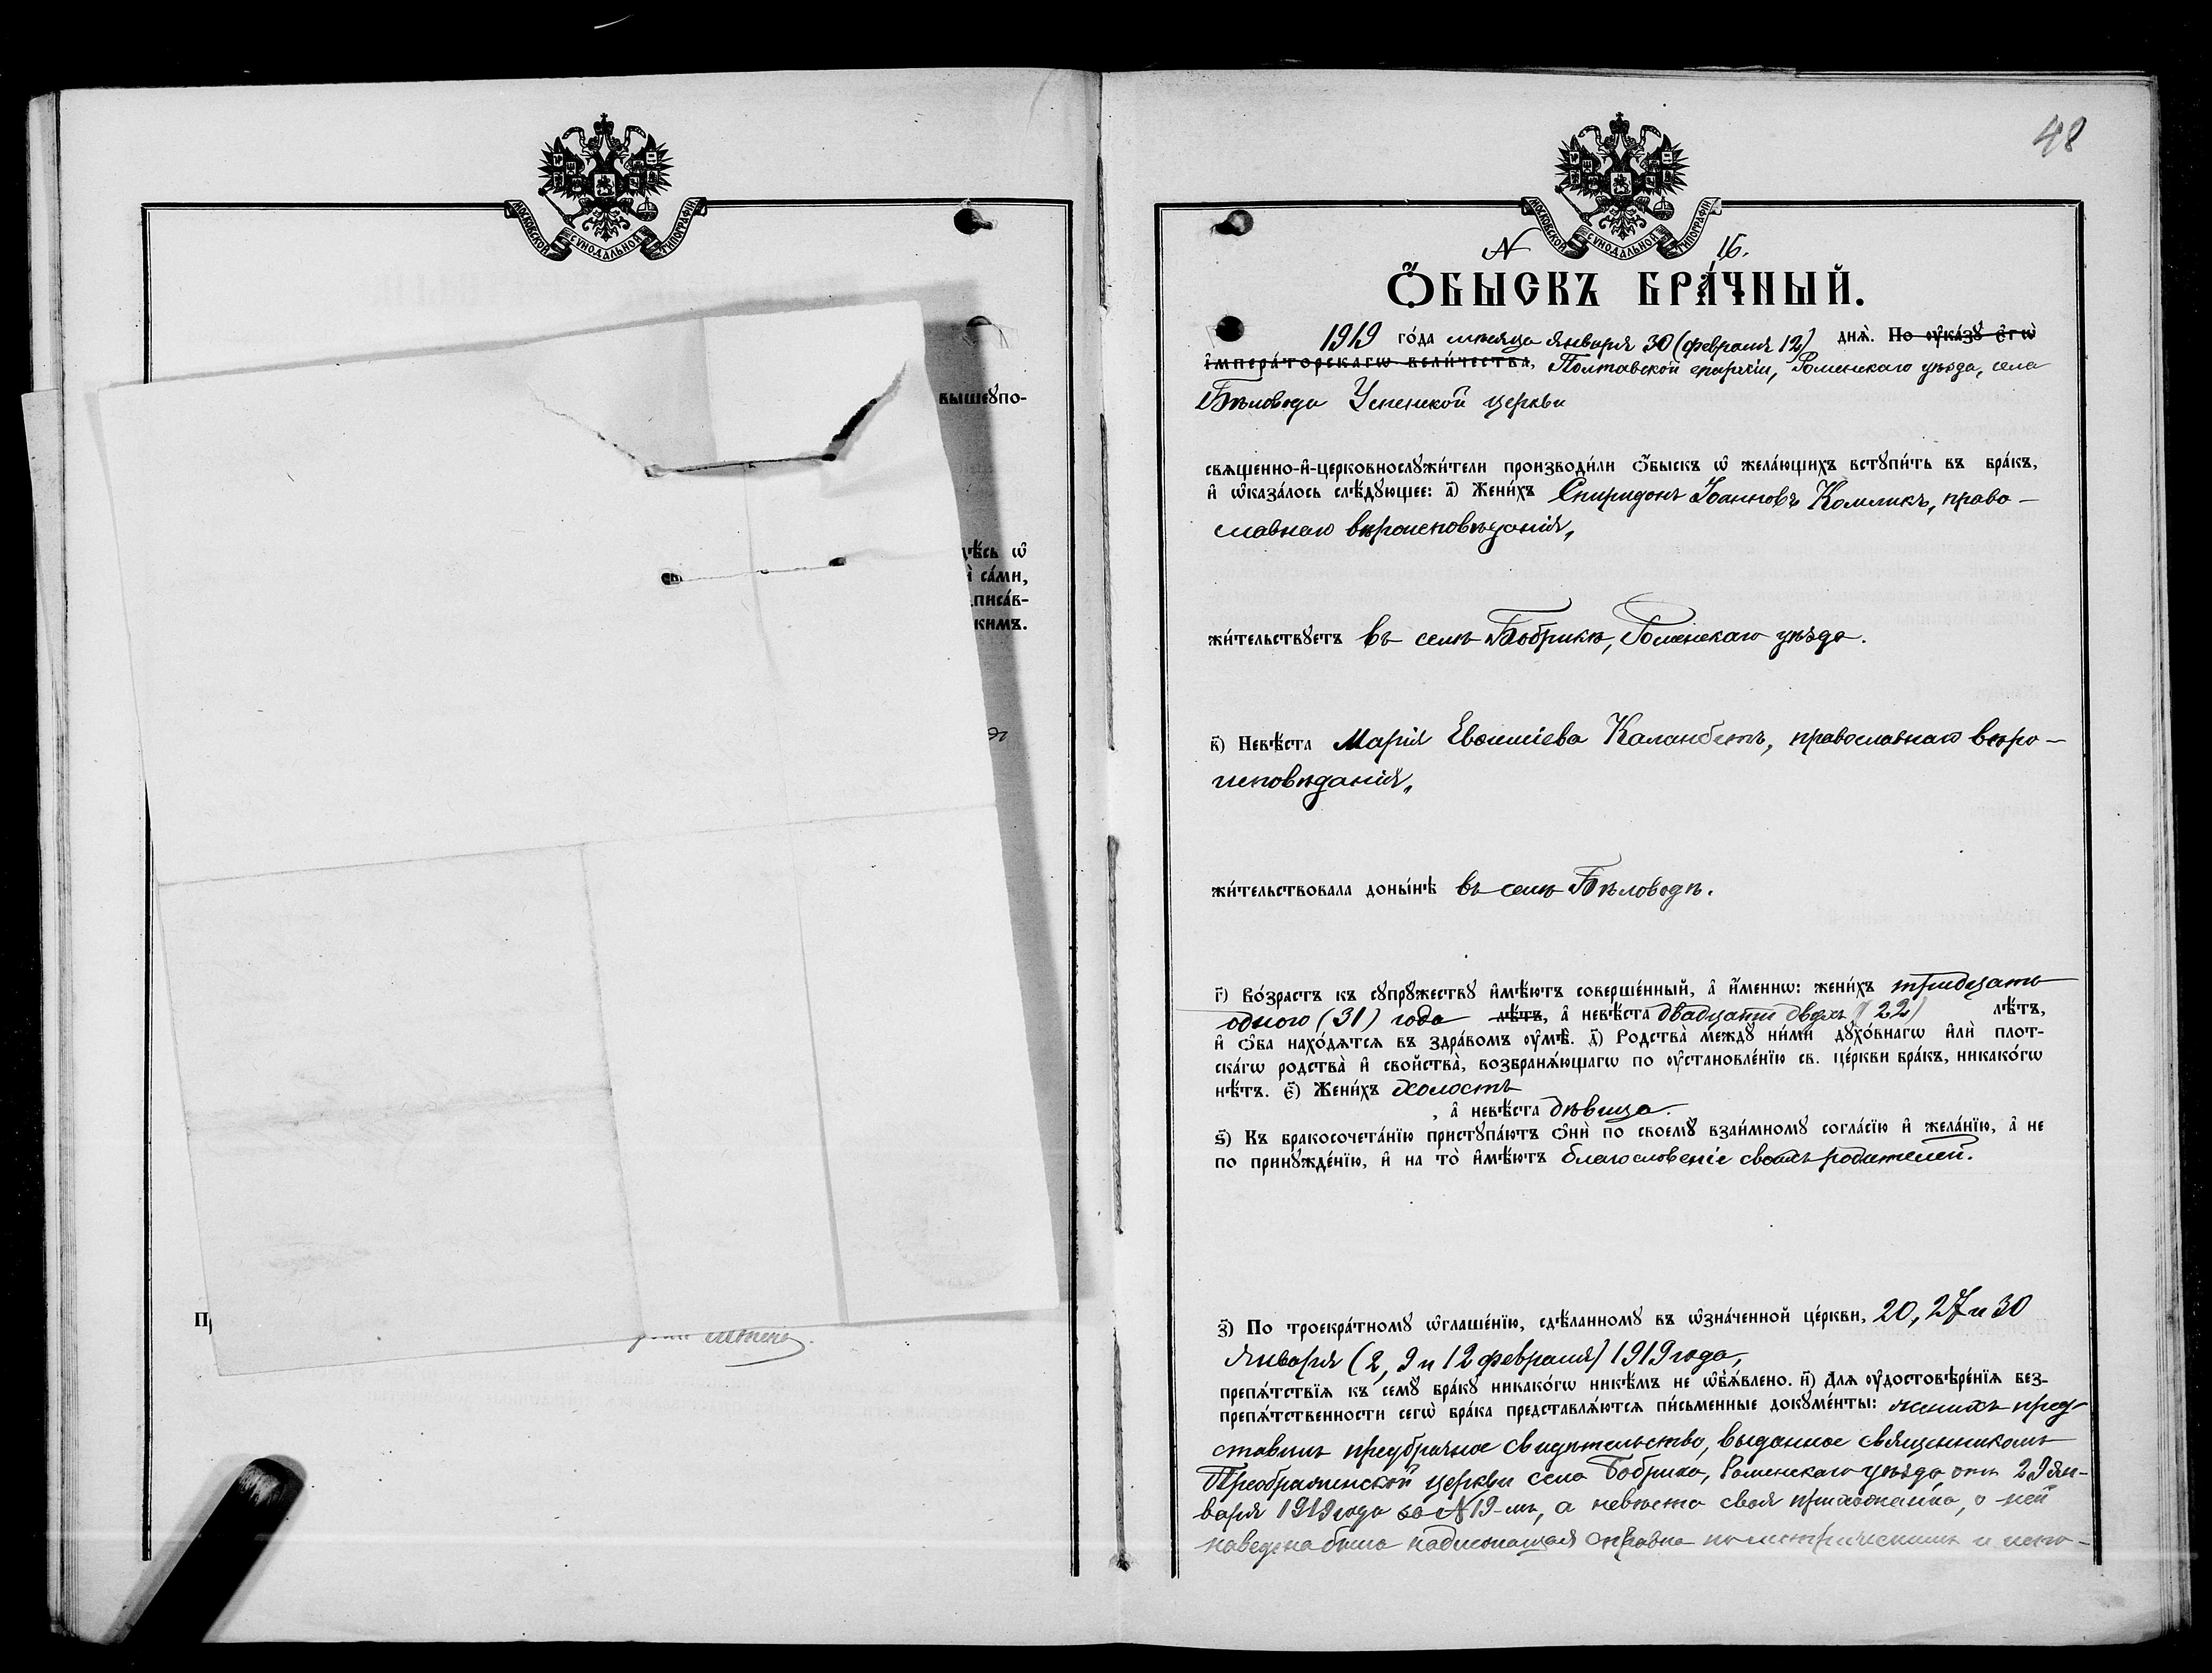 МОСКОВСКОЙ СѴНОДАЛЬНОЙ ТИПОГРАФІИ
вышеꙋпо-
сáми,
писáв-
кимъ.
48
МОСКОВСКОЙ СѴНОДАЛЬНОЙ ТИПОГРАФІИ
N 16.
Ѻ҆БЫСКЪ БРА́ЧНЫЙ.
1919 го́да мѣсяца января 30 (февраля 12) днѧ̀. По ᲂу҆ка́зꙋ є҆гѡ̀
і҆мпера́торскагѡ вели́чества, Полтавской епархіи, Роменскаго уѣзда, села
Бѣловода Успенской церкви
свѧщенно-и҆-церковнослꙋжи́тели производи́ли ѻ҆́быскъ ѡ҆ жела́ющихъ встꙋпи́ть въ бра́къ,
и҆ ѡ҆каза́лось слѣ́дꙋющее: а҃) Жени́хъ Спиридонъ Іоанновъ Комликъ, право-
славнаго вѣроисповѣданія,
жи́тельствꙋетъ въ селѣ Бобрикѣ, Роменскаго уѣзда.
в҃) Невѣ́ста Марія Евсишіева Каланбетъ, православнаго вѣро-
исповѣданія,
жи́тельствовала доны́нѣ въ селѣ Бѣловодѣ.
г҃) Во́зрастъ къ сꙋпрꙋ́жествꙋ и҆мѣ́ютъ соверше́нный, а҆ и҆́меннѡ: жени́хъ тридцать
одного (31) года лѣ́тъ, а҆ невѣ́ста двадцати двухъ (22) лѣ́тъ,
и҆ ѻ҆́ба нахо́дѧтсѧ въ здра́вомъ ᲂу҆мѣ̀. д҃) Родства̀ междꙋ̀ ни́ми дꙋхо́внагѡ и҆лѝ плот-
ска́гѡ родства̀ и҆ свойства̀, возбранѧ́ющагѡ по ᲂу҆становле́нїю св. це́ркви бра́къ, никако́гѡ
нѣ́тъ. є҃) Жени́хъ холостъ
, а҆ невѣ́ста дѣвица.
ѕ҃) Къ бракосочета́нїю пристꙋпа́ютъ ѻ҆нѝ по своемꙋ̀ взаи́мномꙋ согла́сїю и҆ жела́нїю, а҆ не
по принꙋжде́нїю, и҆ на то̀ и҆мѣ́ютъ благословеніе своихъ родителей.
з҃) По троекра́тномꙋ ѡ҆глаше́нїю, сдѣ́ланномꙋ въ ѡ҆зна́ченной це́ркви, 20, 27 и 30
января (2, 9 и 12 февраля) 1919 года,
препѧ́тствїѧ къ семꙋ̀ бра́кꙋ никако́гѡ никѣ́мъ не ѡ҆бъѧ́влено. и҃) Длѧ ᲂу҆достовѣре́нїѧ без-
препѧ́тственности сегѡ̀ бра́ка представлѧ́ютсѧ пи́сьменные докꙋме́нты: женихъ пред-
ставилъ предбрачное свидѣтельство, выданное священникомъ
Преображенской церкви села Бобрика, Роменскаго уѣзда отъ 29 ян-
варя 1919 года за №19-мъ, а невѣста своя прихожанка, о ней
наведена была надлежащая справка по метрическимъ и испо-